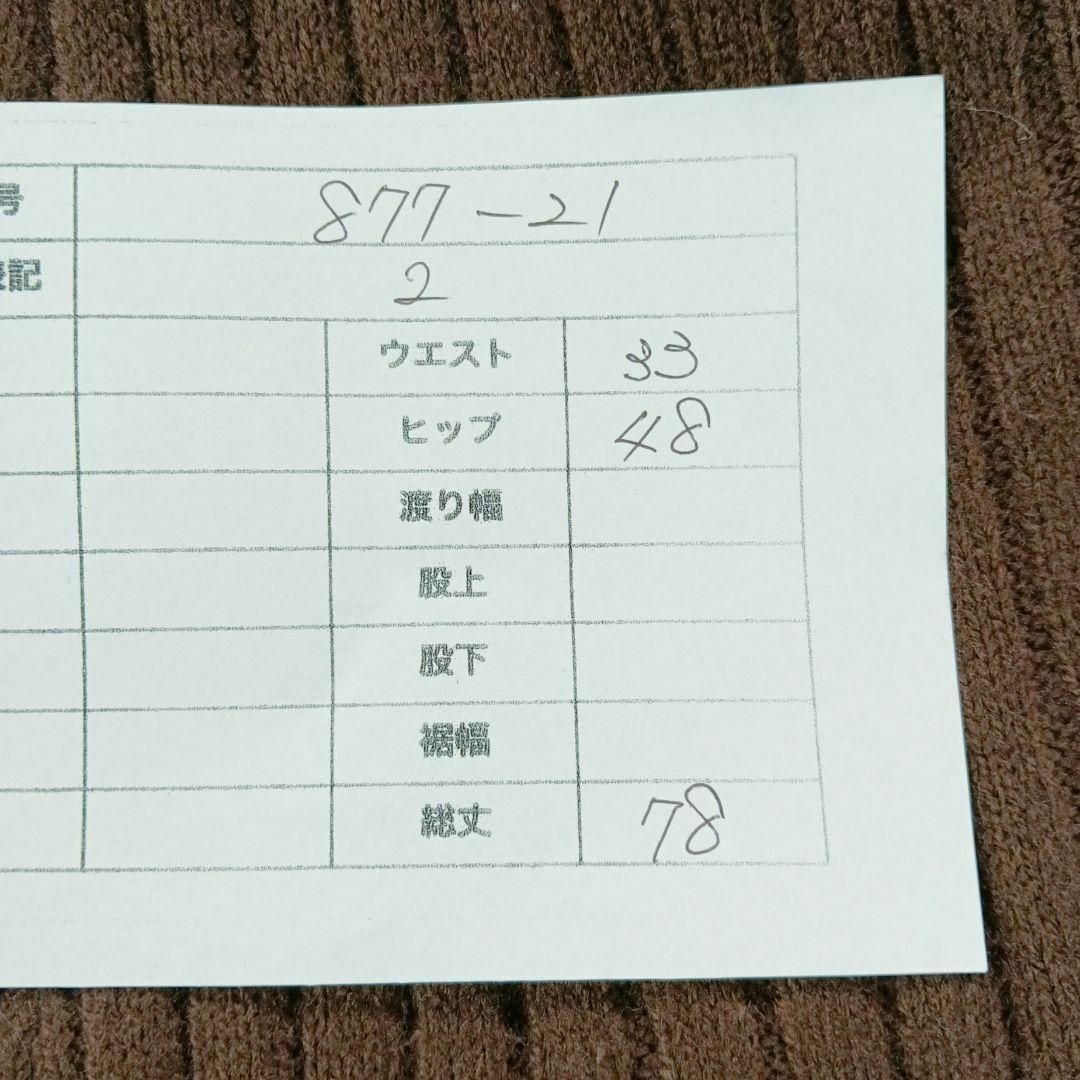 号 877-21
表記 2
ウエスト 33
ヒップ 48
渡り幅
股上
股下
裾幅
総丈 78